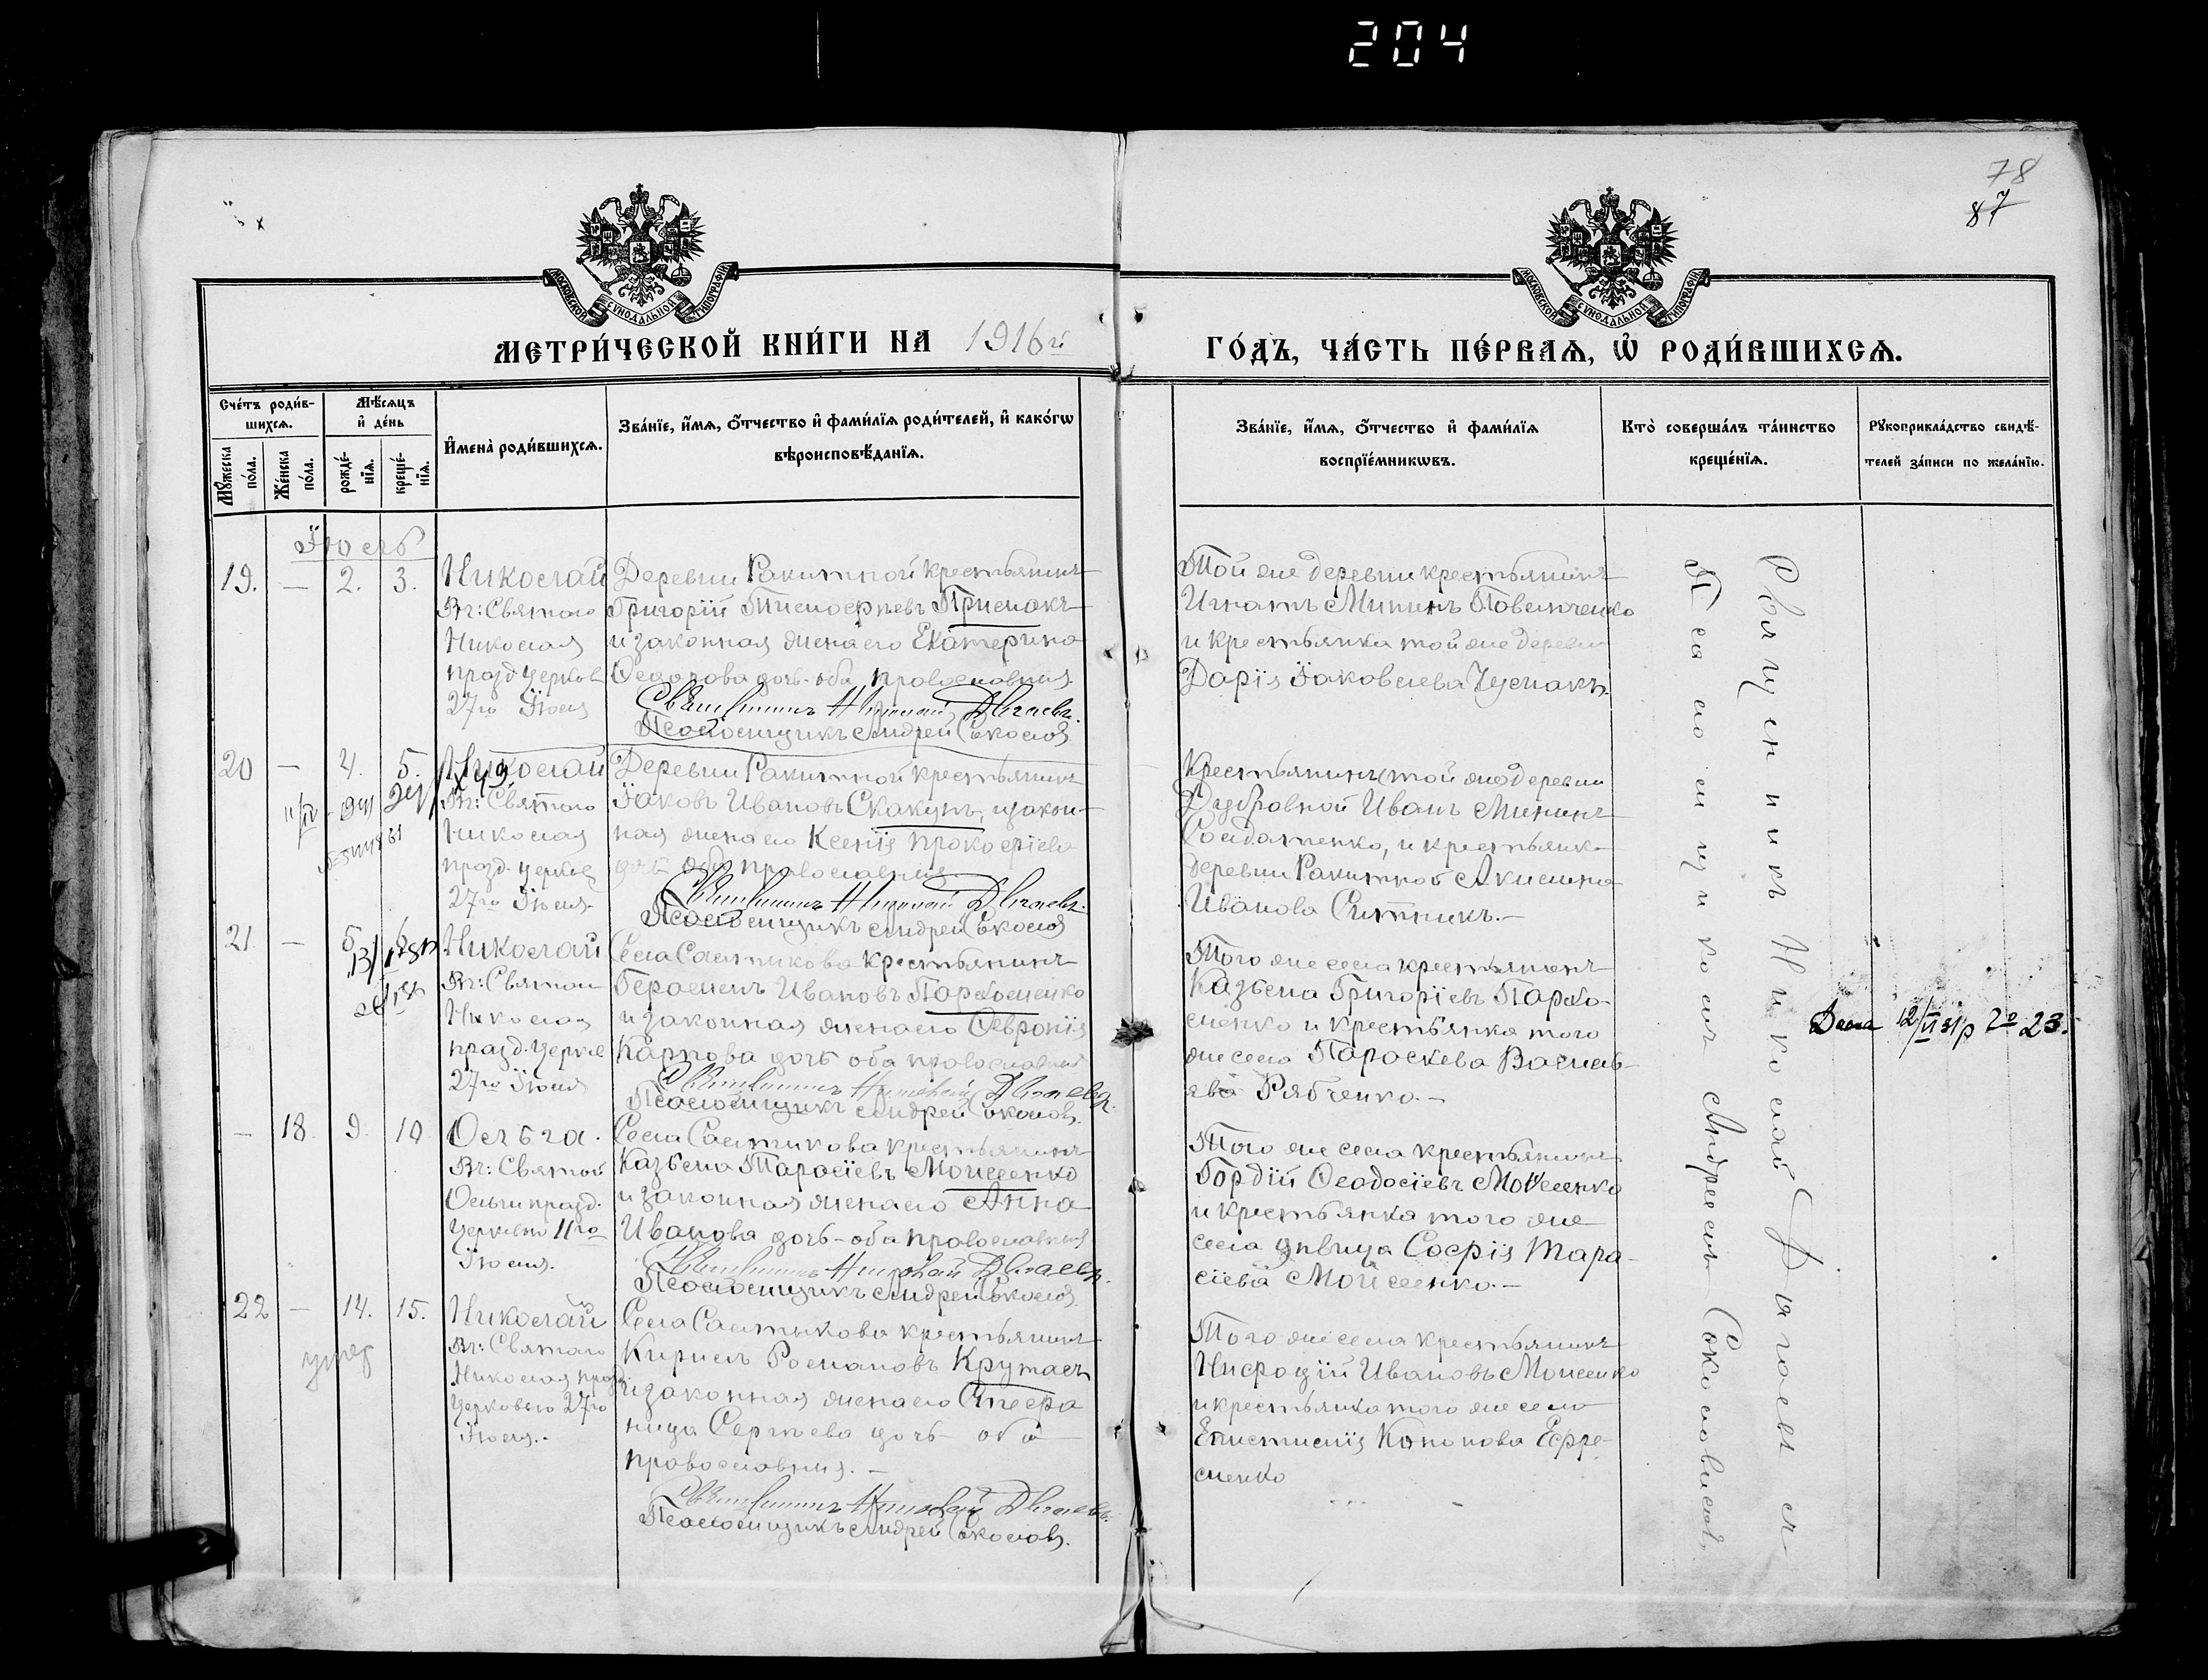 204
78
87
МОСКОВСКОЙ СУНОДАЛЬНОЙ ТИПОГРАФІИ
МОСКОВСКОЙ СУНОДАЛЬНОЙ ТИПОГРАФІИ
МЕТРИ́ЧЕСКОЙ КНИ́ГИ НА 1916 г.
ГО́ДЪ, ЧА́СТЬ ПЕ́РВАѦ, Ѡ҆ РОДИ́ВШИХСѦ.
Сче́тъ роди́в-
шихсѧ.
Мꙋ́жеска по́ла.
Же́нска по́ла.
Мѣ́сѧцъ
и҆ де́нь
рожде́-
нїѧ.
креще́-
нїѧ.
И҆мена̀ роди́вшихсѧ.
Зва́нїе, и҆́мѧ, ѻ҆́тчество и҆ фами́лїѧ роди́телей, и҆ како́гѡ
вѣроисповѣ́данїѧ.
Зва́нїе, и҆́мѧ, ѻ҆́тчество и҆ фами́лїѧ
воспрїе́мникѡвъ.
Кто̀ соверша́лъ та́инство
креще́нїѧ.
Рꙋкоприкла́дство свидѣ́-
телей за́писи по жела́нїю.
Іюль
19. — 2. 3.
Николай
Въ: Святого
Николая
празд. церков
27го Іюля
Деревни Ракитной крестьянинъ
Григорій Пименовъ Примакъ
и законная жена его Екатерина
Ѳеодорова дочь - оба православныя
Священникъ Николай Дягаевъ.
Псаломщикъ Андрей Соколовъ
Той же деревни крестьянинъ
Игнатъ Мининъ
и крестьянка той же деревни
Дарія Іаковлева Чумакъ.
20 — 4. 5.
Николай
Въ: Святого
Николая
празд. церков
27го Іюля
Деревни Ракитной крестьянинъ
Іаковъ Ивановъ Скакунъ, и закон-
ная жена его Ксенія Прокофіева
дочь оба православныя
Священникъ Николай Дягаевъ.
Псаломщикъ Андрей Соколовъ
Крестьянинъ той же деревни
Дубровной Иванъ Мининъ
Солдатенко, и крестьянка
деревни Ракитной Акилина
Иванова Ситникъ.—
21 — 5 6
Николай
Въ: Святого
Николая
празд. церков
27го Іюля
Села Салтикова крестьянинъ
Герасимъ Ивановъ Пархоменко
и законная жена его Февронія
Карпова дочь оба православныя
Священникъ Николай Дягаевъ.
Псаломщикъ Андрей Соколовъ.
Того же села крестьянинъ
Казьма Григоріевъ Пархо-
менко и крестьянка того
же села Параскева Василь-
ева Рябченко.—
Дана 12/VI 31р 20 23.
— 18. 9. 10
Ольга.
Въ: Святой
Ольги празд.
церковію 11го
Іюля.
Села Салтикова крестьянинъ
Казьма Тарасіевъ Моисеенко
и законная жена его Анна
Иванова дочь - оба православныя
Священникъ Николай Дягаевъ.
Псаломщикъ Андрей Соколовъ
Того же села крестьянинъ
Гордій Ѳеодосіевъ Моисеенко
и крестьянка того же
села дѣвица Софія Тара-
сіева Моисеенко.—
22 — 14. 15.
умер
Николай
Въ: Святого
Николая празд.
церковью 27го
Іюля.
Села Салтыкова крестьянинъ
Кирилъ Романовъ Крутась
и законная жена его
Сергѣева дочь оба
православныя.—
Священникъ Николай Дягаевъ.
Псаломщикъ Андрей Соколовъ.
Того же села крестьянинъ
Никодій Ивановъ Моисеенко
и крестьянка того же села
Епистимія Кононова Ефре-
менко
Священникъ Николай Дягаевъ съ
Псаломщикомъ Андреемъ Соколовымъ